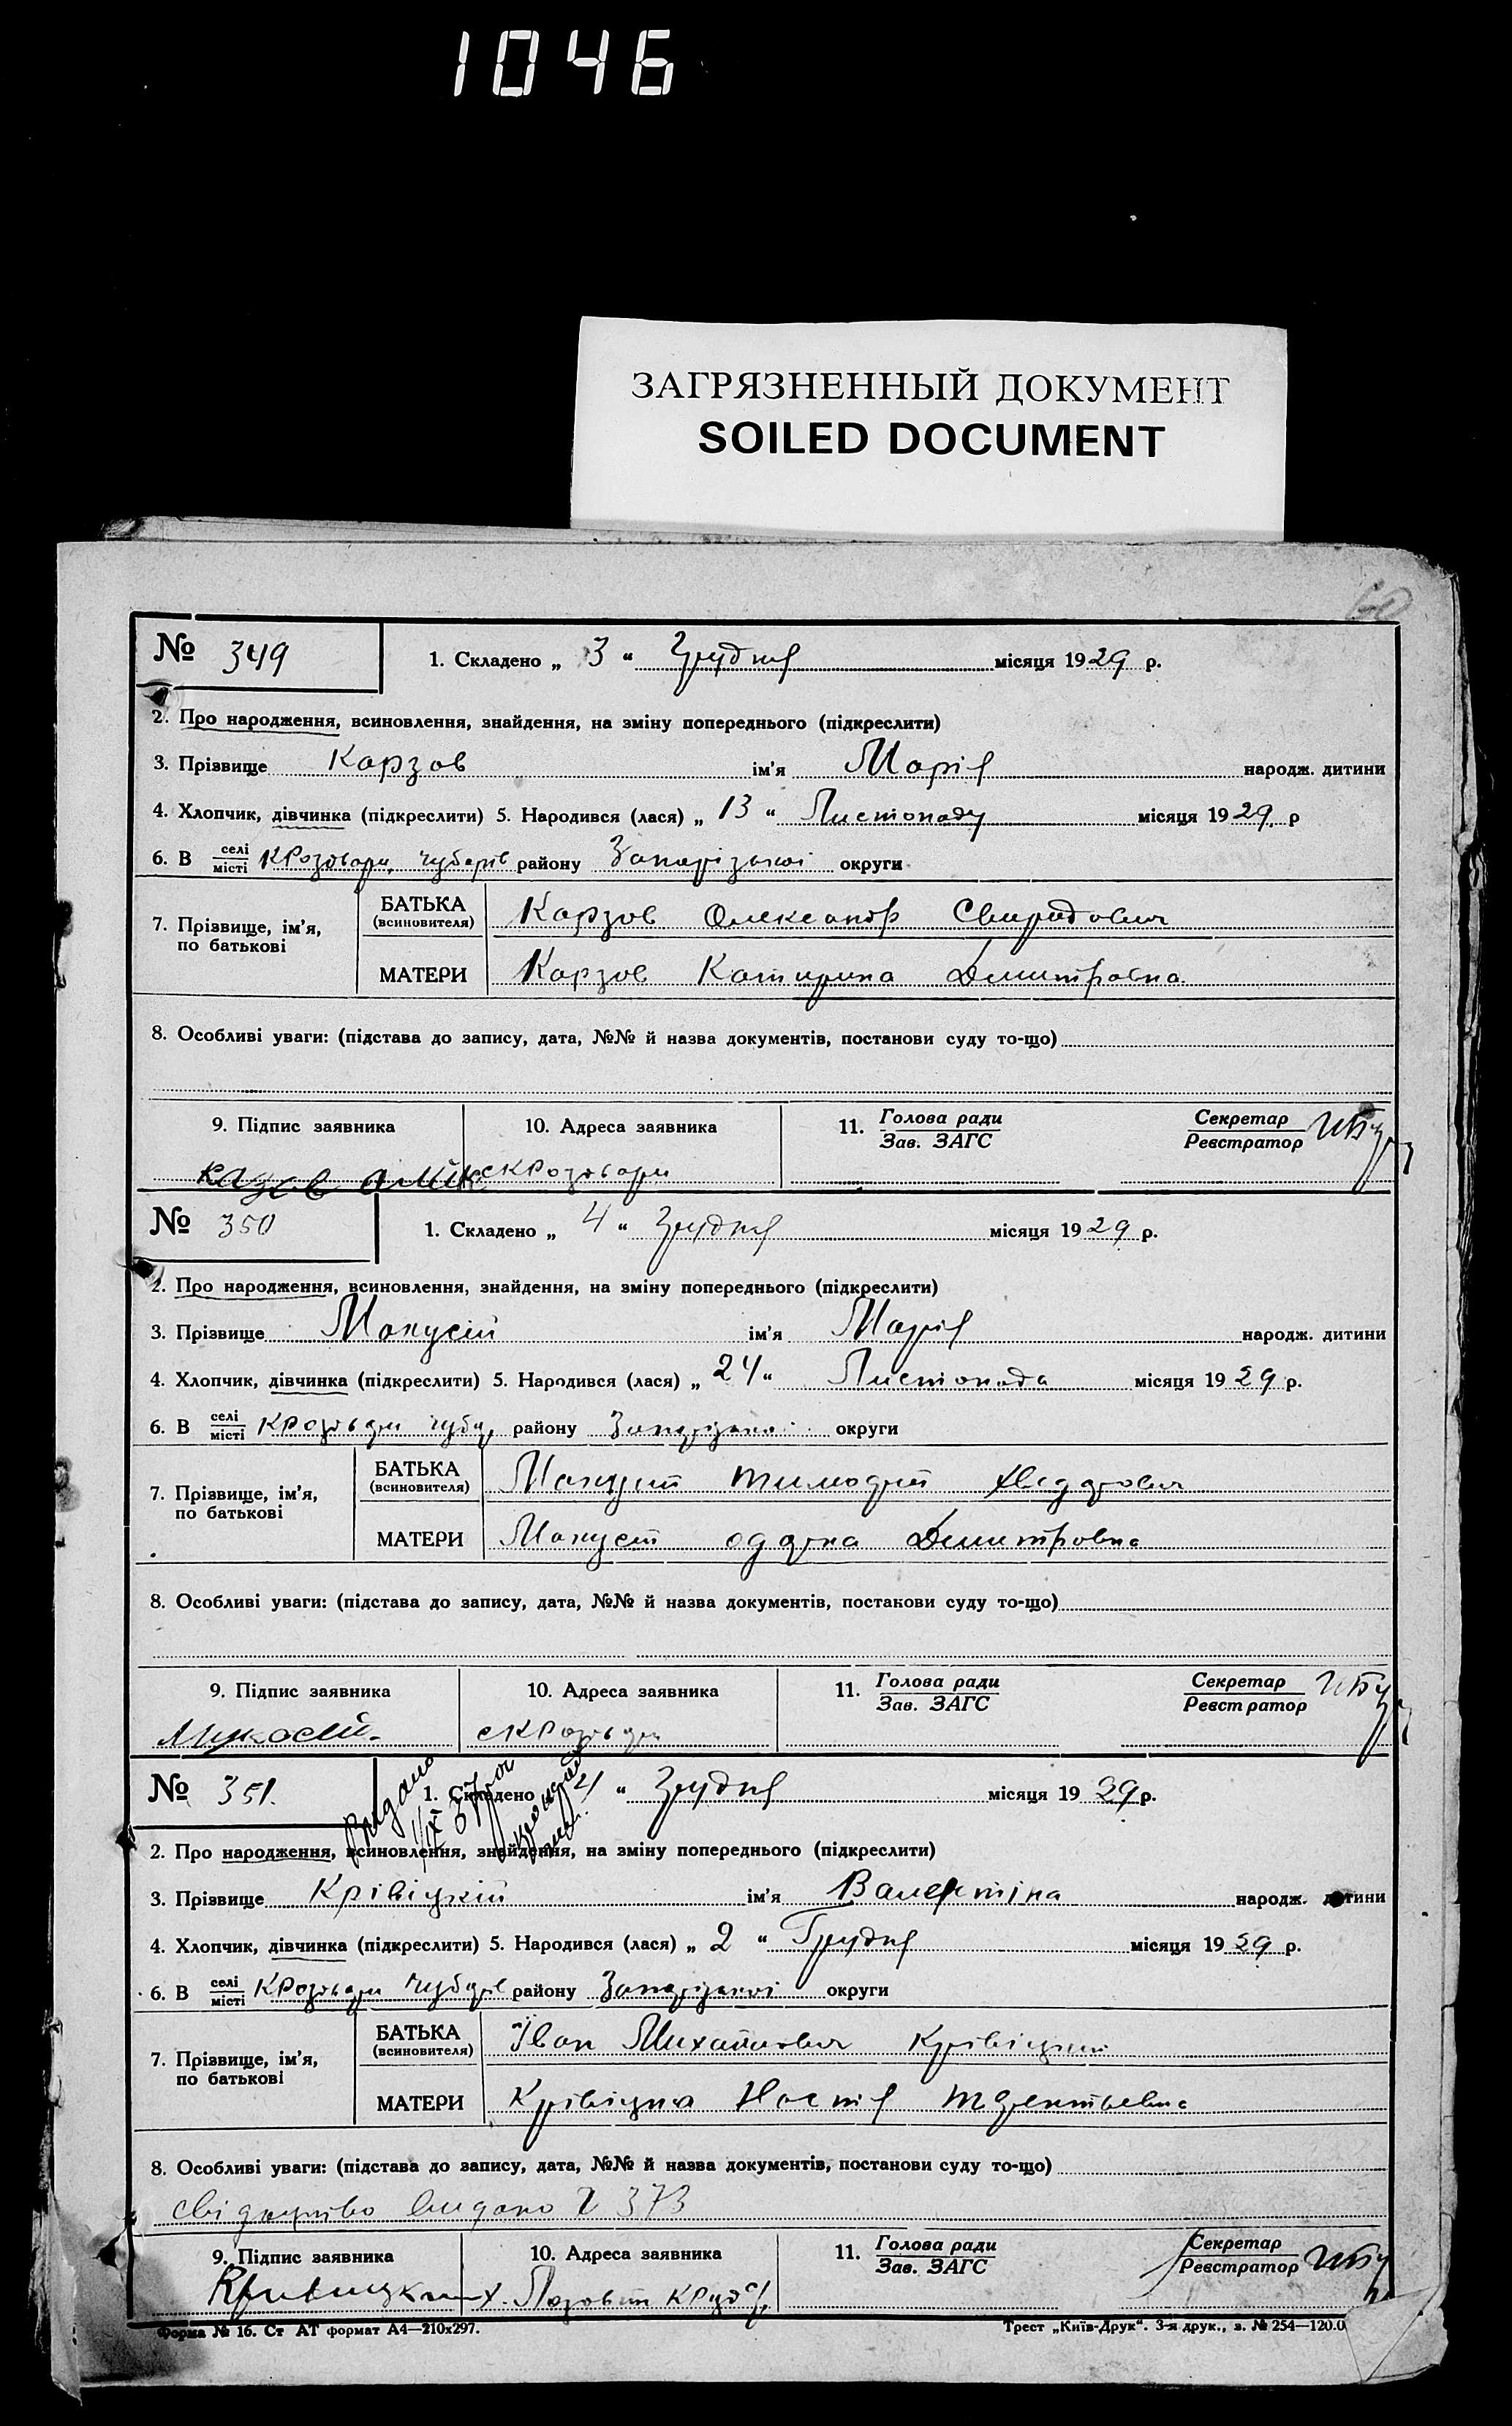 1046
ЗАГРЯЗНЕННЫЙ ДОКУМЕНТ
SOILED DOCUMENT
60
№ 349 1. Складено „ 3 “ Грудня місяця 1929 р.
2. Про народження, всиновлення, знайдення, на зміну попереднього (підкреслити)
3. Прізвище Карзов ім'я Марія народж. дитини
4. Хлопчик, дівчинка (підкреслити) 5. Народився (лася) „ 13 “ Листопаду місяця 1929 р
6. В селі місті КРозсохи, Чубарів району Запорізької округи
7. Прізвище, ім'я, по батькові
БАТЬКА (всиновителя) Карзов Олександр Свиридович
МАТЕРИ Карзов Катирина Димитровна
8. Особливі уваги: (підстава до запису, дата, №№ й назва документів, постанови суду то-що)
9. Підпис заявника 10. Адреса заявника 11. Голова ради Зав. ЗАГС Секретар Реєстратор
№ 350 1. Складено „ 4 “ Грудня місяця 1929 р.
2. Про народження, всиновлення, знайдення, на зміну попереднього (підкреслити)
3. Прізвище Макусій ім'я Марія народж. дитини
4. Хлопчик, дівчинка (підкреслити) 5. Народився (лася) „ 24 “ Листопада місяця 1929 р.
6. В селі місті району Запорізької округи
7. Прізвище, ім'я, по батькові
БАТЬКА (всиновителя) Макусий Тимофий
МАТЕРИ Макусий Димитровна
8. Особливі уваги: (підстава до запису, дата, №№ й назва документів, постанови суду то-що)
9. Підпис заявника 10. Адреса заявника 11. Голова ради Зав. ЗАГС Секретар Реєстратор
№ 351. 1. Складено „ 4 “ Грудня місяця 1929 р.
Видано
2. Про народження, всиновлення, знайдення, на зміну попереднього (підкреслити)
3. Прізвище Крівіцкій ім'я Валентіна народж. дитини
4. Хлопчик, дівчинка (підкреслити) 5. Народився (лася) „ 2 “ Грудня місяця 1929 р.
6. В селі місті Чубарів району Запорізької округи
7. Прізвище, ім'я, по батькові
БАТЬКА (всиновителя) Іван Михайлович Крівіцкий
МАТЕРИ Крівіцка Настія Терентьевна
8. Особливі уваги: (підстава до запису, дата, №№ й назва документів, постанови суду то-що)
свідоцтво видано 373
9. Підпис заявника 10. Адреса заявника 11. Голова ради Зав. ЗАГС Секретар Реєстратор
Кривицкий
Форма № 16. Ст АТ формат А4—210х297. Трест „Київ-Друк“. 3-я друк., з. № 254—120.0